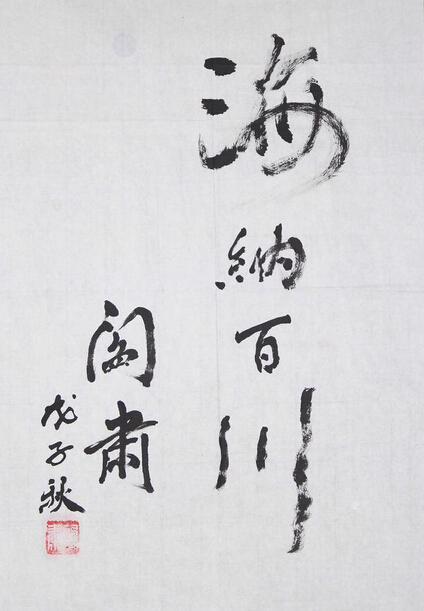 海納百川
阎肅
戊子秋